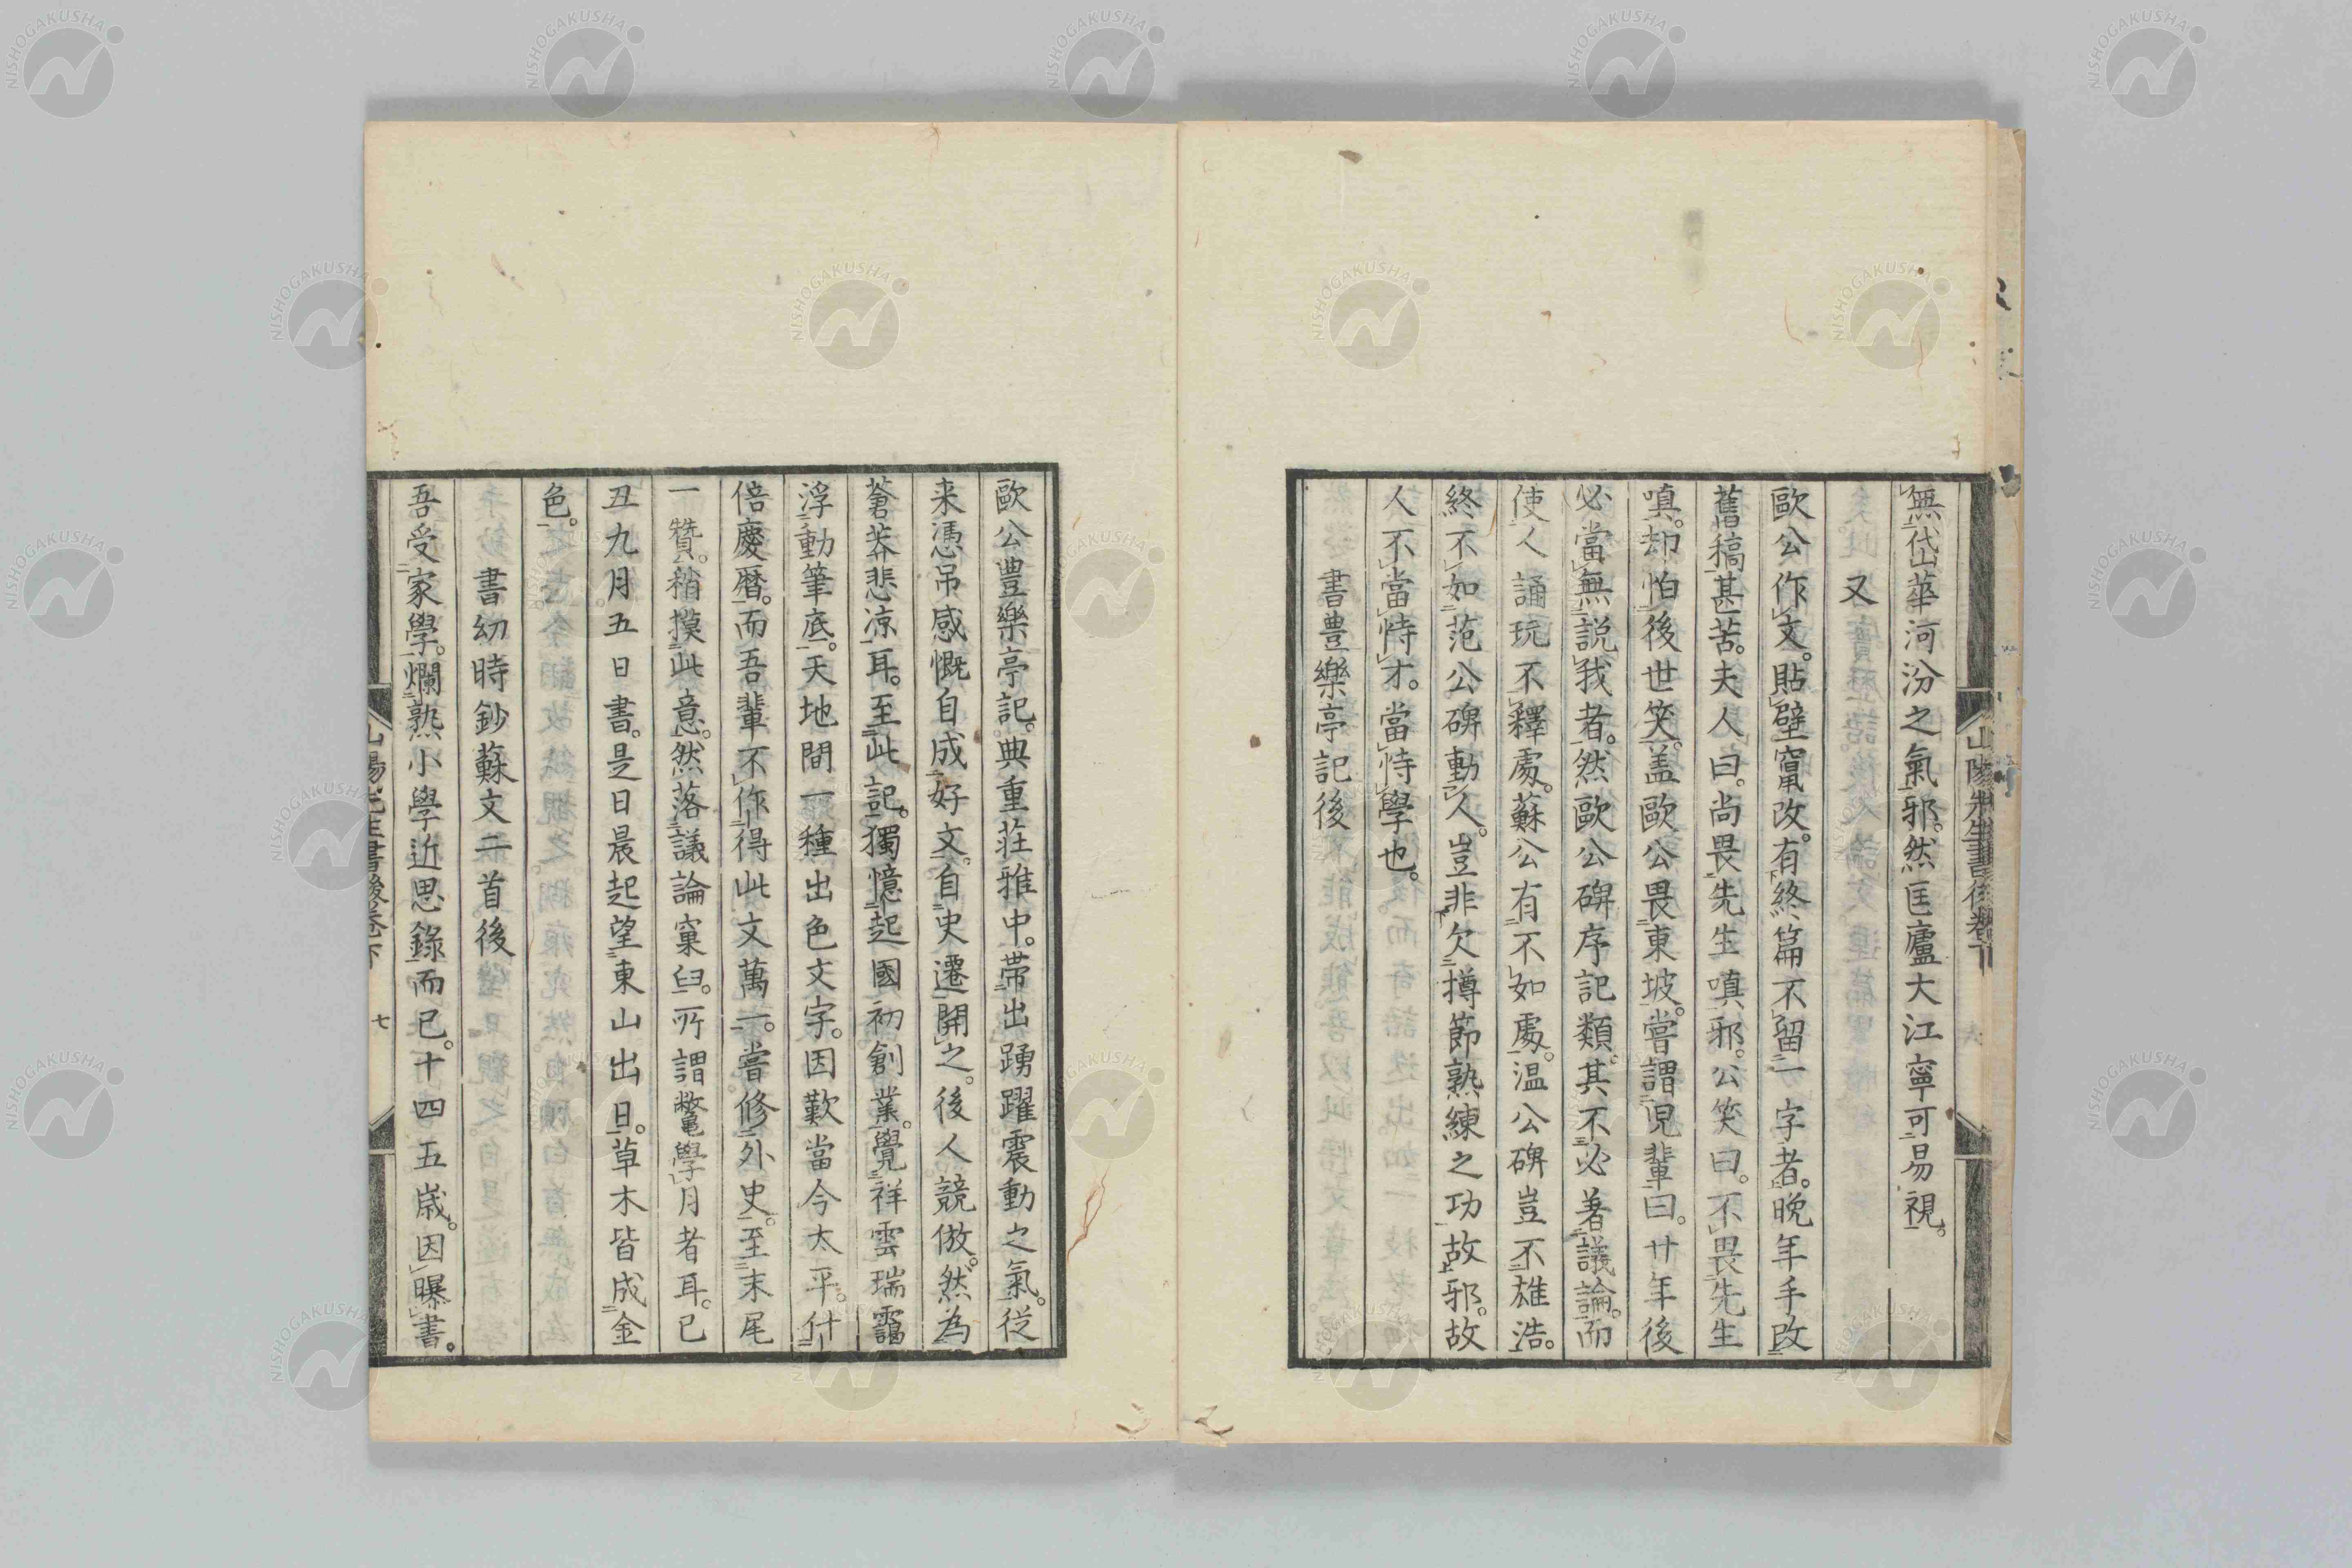 無岱山華河汾之氣邪。然匡廬大江寧可易視。
又
歐公作文。貼壁竄改。有終篇不留一字者。晚年手改
舊稿甚苦。夫人曰。尚畏先生嗔邪。公笑曰。不畏先生
嗔。却怕後世笑。蓋歐公畏東坡。嘗謂兒輩曰。廿年後
必當無說我者。然歐公碑序記類。其不必著議論。而
使人誦玩不釋處。蘇公有不如處。温公碑豈不雄浩。
終不如范公碑動人。豈非欠撙節熟練之功故邪。故
人不當恃才。當恃學也。
書豊樂亭記後
山陽先生書後卷下
六
歐公豊樂亭記。典重莊雅中。帶出踴躍震動之氣。従
来憑吊感慨自成好文。自史遷開之。後人競倣。然為
蒼莽悲凉耳。至此記。獨憶起國初創業。覺祥雲瑞靄
浮動筆底。天地間一種出色文字。因歎當今太平。什
倍慶暦。而吾輩不作得此文萬一。嘗修外史。至末尾
一贊。稍摸此意。然落議論窠臼。所謂鼈學月者耳。已
丑九月五日書。是日晨起望東山出日。草木皆成金
色。
書幼時鈔蘇文二首後
吾受家學。爛熟小學近思錄而已。十四五歳。因曝書。
山陽先生書後卷下
七
NISHOGAKUSHA